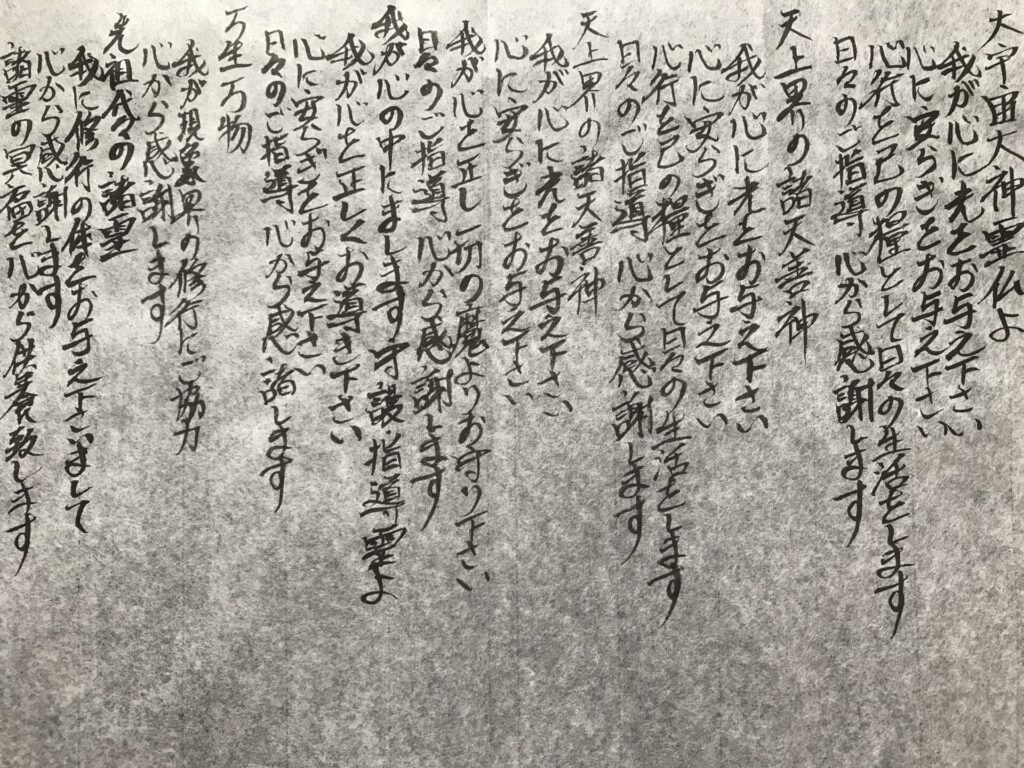 大宇宙大神霊仏よ
我が心に光をお与え下さい
心に安らぎをお与え下さい
心行を己の糧として日々の生活をします
日々のご指導 心から感謝します
天上界の諸天善神
我が心に光をお与え下さい
心に安らぎをお与え下さい
心行を己の糧として日々の生活をします
日々のご指導 心から感謝します
天上界の諸天善神
我が心に光をお与え下さい
心に安らぎをお与え下さい
我が心を正し一切の魔よりお守り下さい
日々のご指導 心から感謝します
我が心の中にまします守護指導霊よ
我が心を正しくお導き下さい
心に安らぎをお与え下さい
日々のご指導 心から感謝します
万生万物
我が現象界の修行にご協力
心から感謝します
先祖代々の諸霊
我に修行の体をお与え下さいまして
心から感謝します
諸霊の冥福を心から供養致します